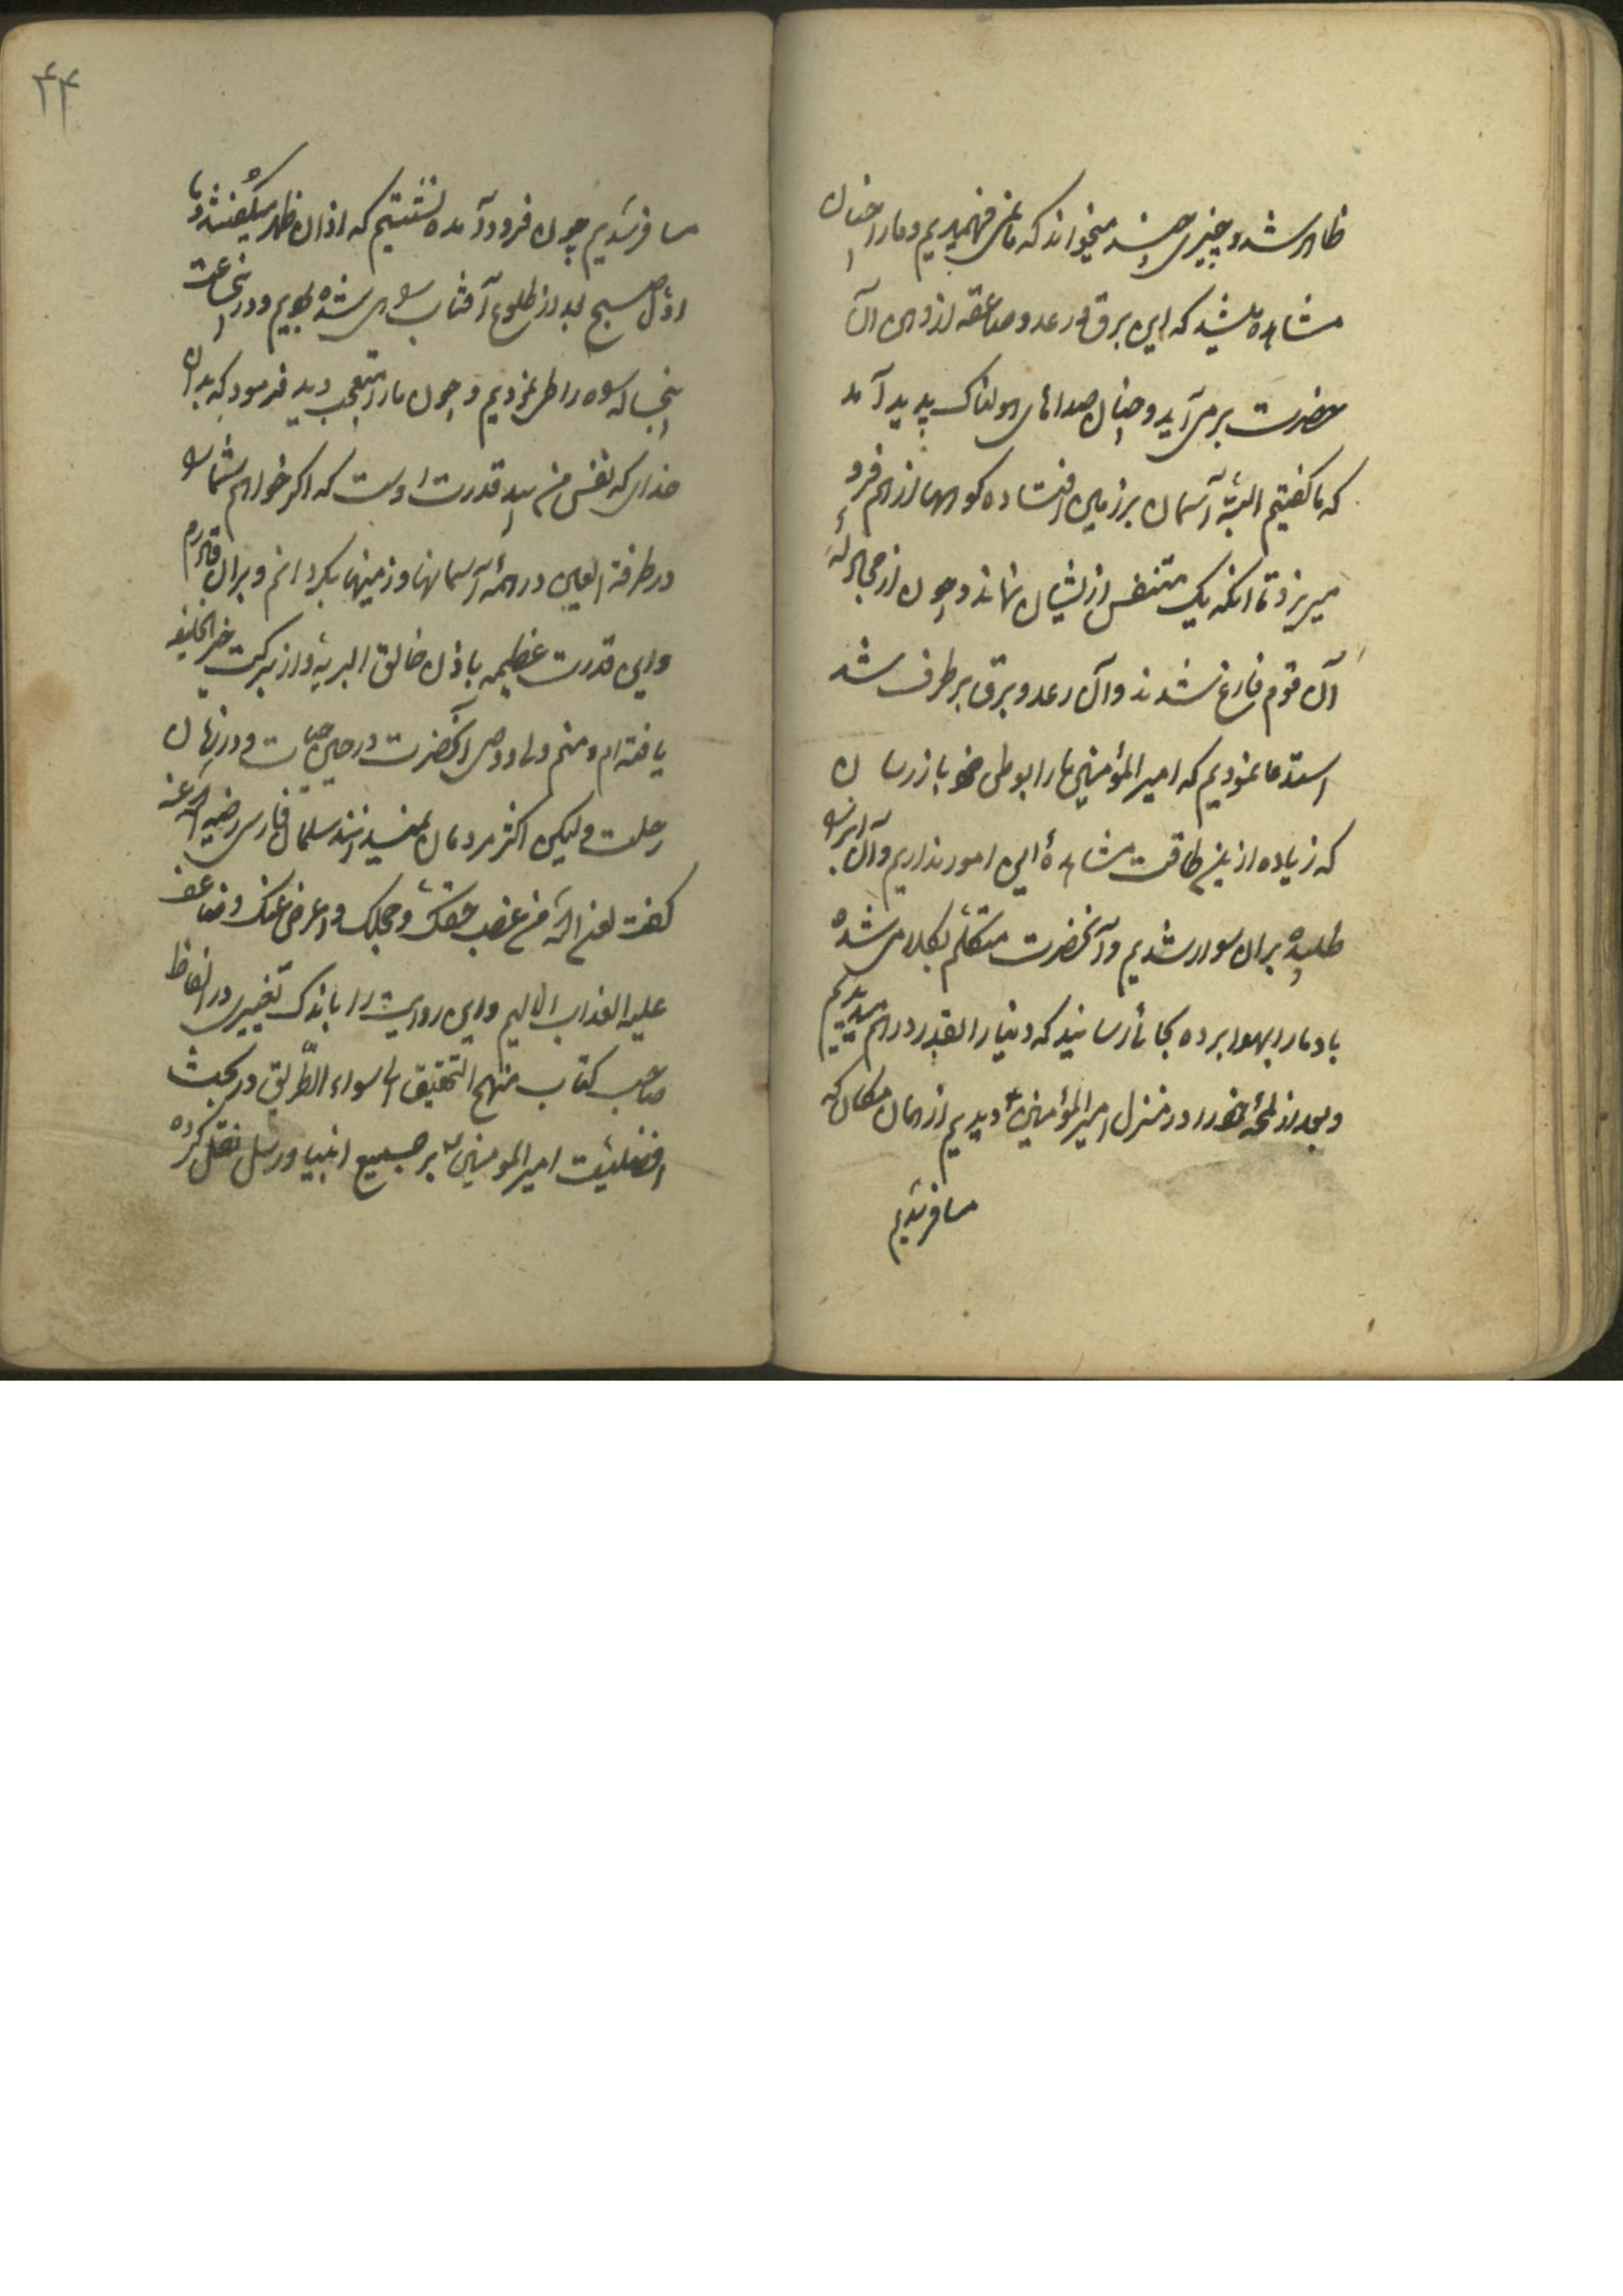 ظاهر شد و چیزی چند میخواند که ما نمی فهمیدیم و ما را چنان
مشاهده میشد که این برق و رعد و صاعقه از دهن آن
حضرت بر می آید و چنان صداهای هولناک پدید آمد
که ما گفتیم البته آسمان بر زمین افتاده کوهها از هم فرو
میریزد تا آنکه یک متنفس از یشان نماند و چون از مجادلهٔ
آن قوم فارغ شدند و آن رعد و برق برطرف شد
استدعا نمودیم که امیر المؤمنین ما را بوطن خود باز رسان
که زیاده ازین طاقت مشاهدهٔ این امور نداریم و آن ابر را
طلبیده بر آن سوار شدیم و آنحضرت متکلم بکلامی شده
باد ما را بهوا برده بجائی رسانید که دنیا را بقدر درهم میدیدیم
و بعد از لمحهٔ خود را در منزل امیر المؤمنین ع دیدیم از همان مکان که
مسافر شدیم
۴۴
مسافر شدیم چون فرود آمده نشستیم که اذان ظهر میگفتند و ما
اول صبح بعد از طلوع آفتاب سوار شده بودیم و در پنج ساعت
پنجاه ساله راه را طی نمودیم و چون ما را متعجب دید فرمود که بدان
خدای که نفس من بید قدرت اوست که اگر خواهم شما را
در طرفة العین در همهٔ آسمانها و زمینها بگردانم و بران قادرم
و این قدرت عظیمه باذن خالق البریه و از برکت خیر الخلیقه
یافته ام و منم ولی و وصی آنحضرت در حین حیات و در زمان
رحلت ولیکن اکثر مردمان نمیدانند سلمان فارسی رضی الله عنه
گفت لعن الله من غصب حقک و جحدک و اعرض عنک و ضاعف
علیه العذاب الالیم و این روایت را باندک تغییری در الفاظ
صاحب کتاب منهج التحقیق الی سواء الطّریق در بحث
افضلیّت امیر المومنین ع بر جمیع انبیا و رسل نقل کرده